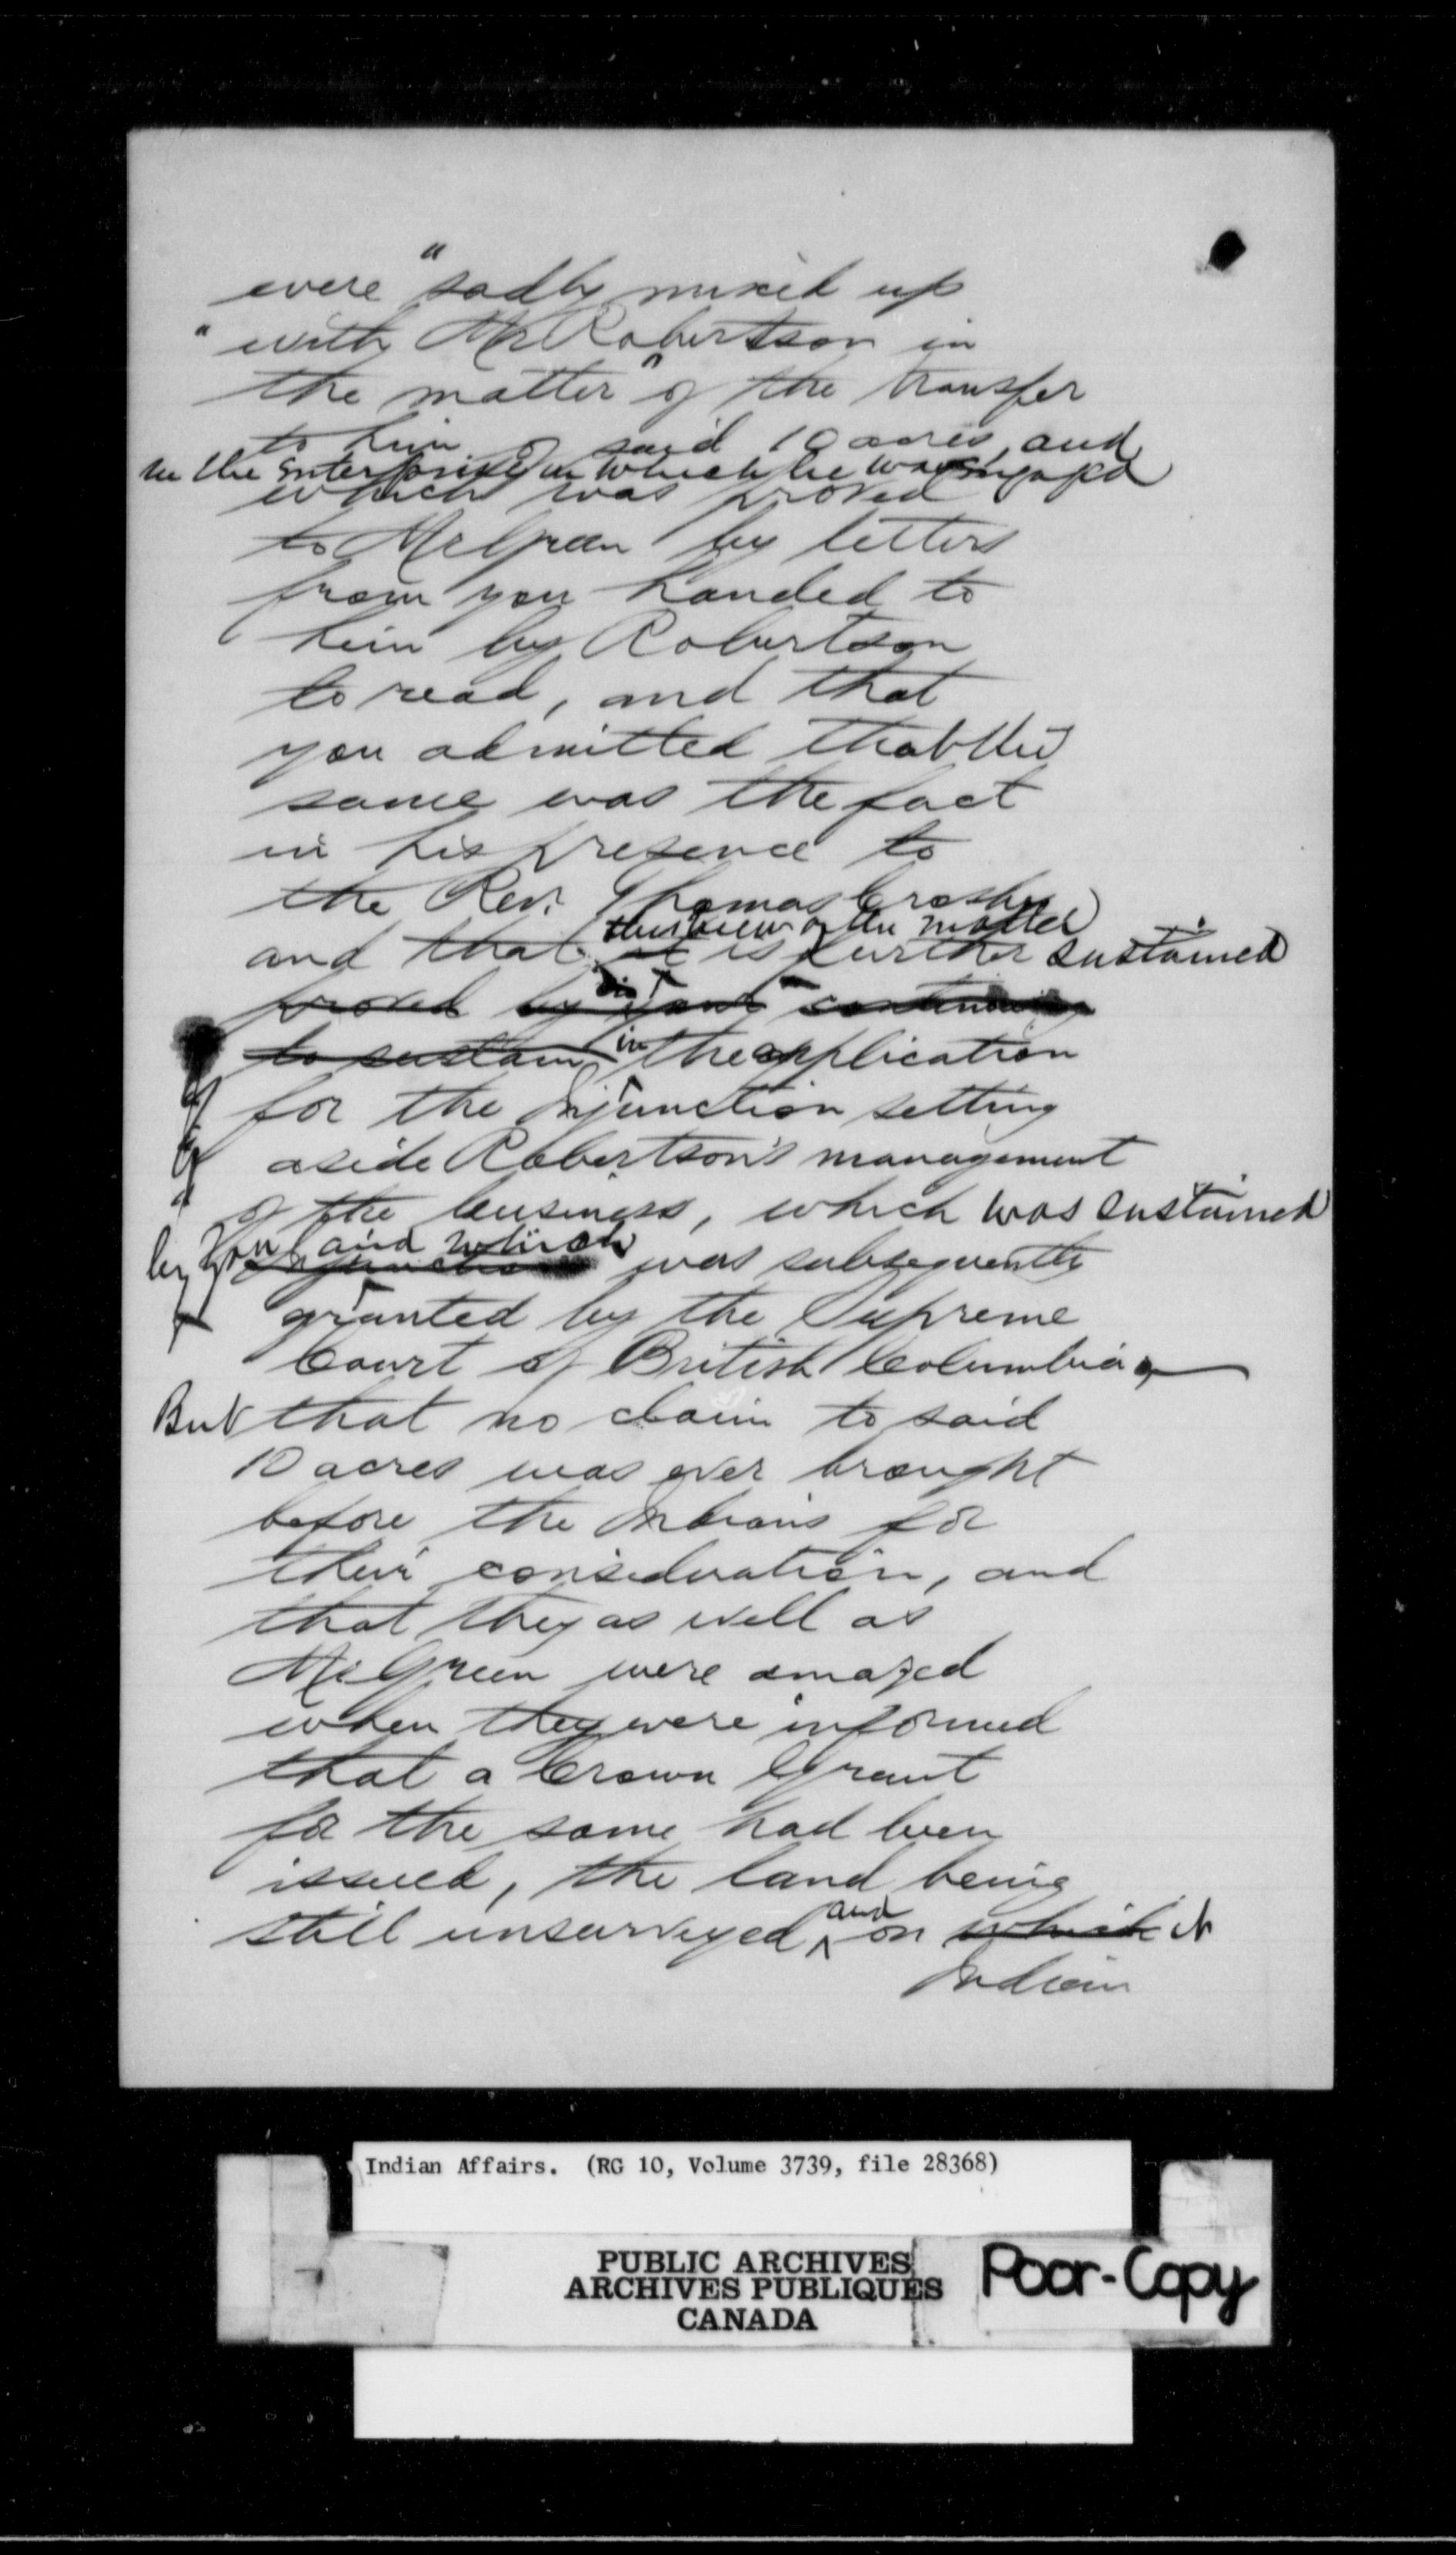 were "sadly mixed up
"with Mr Robertson in
the matter" of the transfer
to him of said 10 acres, and
in the enterprise in which he was engaged
which was proved
to Mr Green by letters
from you handed to
him by Robertson
to read, and that
you admitted that this
same was the fact
in his presence to
the Rev. Thomas Crosby
this view of the matter
and that it is further sustained
proved by your continuing
to sustain in the application
for the Injunction setting
aside Robertson's management
of the business, which was sustained
by you and which was subsequently
granted by the Supreme
Court of British Columbia
But that no claim to said
10 acres was ever brought
before the Indians for
their consideration, and
that they as well as
Mr Green were amazed
when they were informed
that a Crown Grant
for the same had been
issued, the land being
still unsurveyed, and on which
Indian
Indian Affairs. (RG 10, Volume 3739, file 28368)
PUBLIC ARCHIVES
ARCHIVES PUBLIQUES
CANADA
Poor-Copy